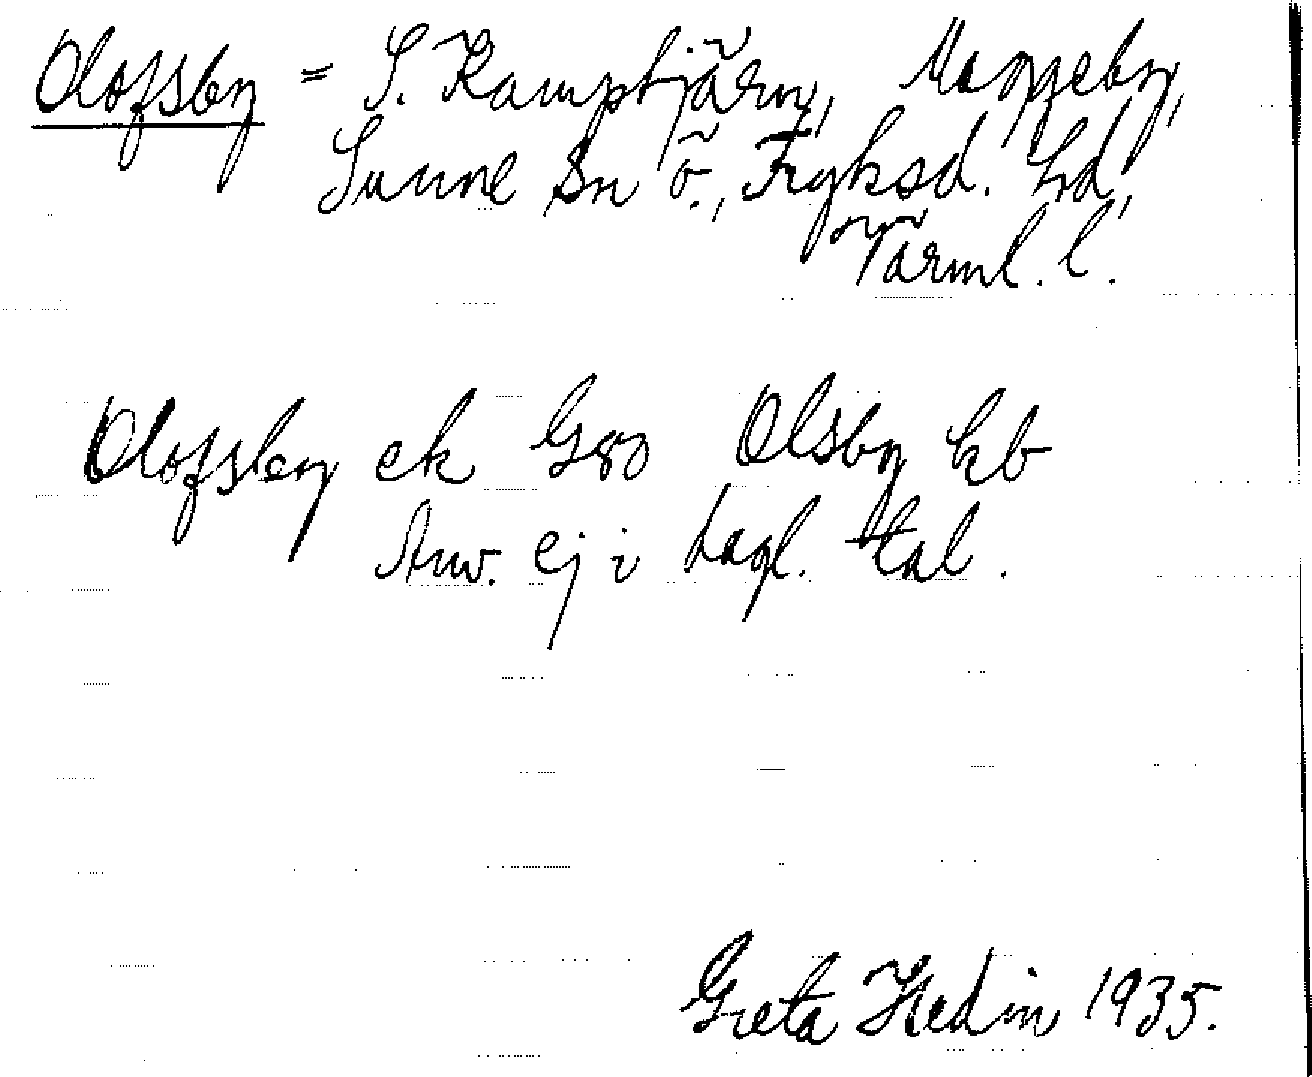 Olofsby = S. Kamptjärn, Maggeby,
Sunne Sn ö., Fryksd. hd,
Värml. l.
Olofsby ek G80 Olsby kb
Anv. ej i dagl. tal.
Greta Hedin 1935.